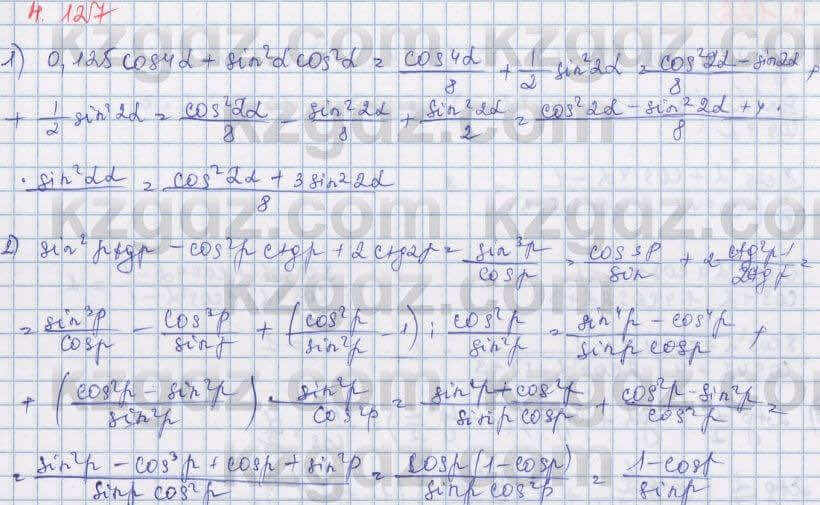 4. 127
1) 0,125cos4α + sin²α cos²α = cos4α/8 + 1/2 sin²2α = cos²2α - sin2α/8 +
+ 1/2 sin²2α = cos²2α/8 - sin²2α/8 + sin²2α/2 = cos²2α - sin²2α + 4·/8
· sin²2α = cos²2α + 3sin²2α/8
2) sin²β tgβ - cos²β ctgβ + 2ctg2β = sin³β/cosβ = cos3β/sin + 2 ctg²β-1/2ctgβ =
= sin³β/cosβ - cos³β/sinβ + (cos²β/sin²β - 1) : cos²β/sin²β = sin⁴β - cos⁴β/sinβ cosβ +
+ (cos²β - sin²β/sin²β) · sin²β/cos²β = sin²β + cos²β/sinβ cosβ + cos²β - sin²β/cos²β =
= sin²β - cos³β + cosβ + sin²β/sinβ cos²β = cosβ(1-cosβ)/sinβ cos²β = 1-cosβ/sinβ
kzgdz.com